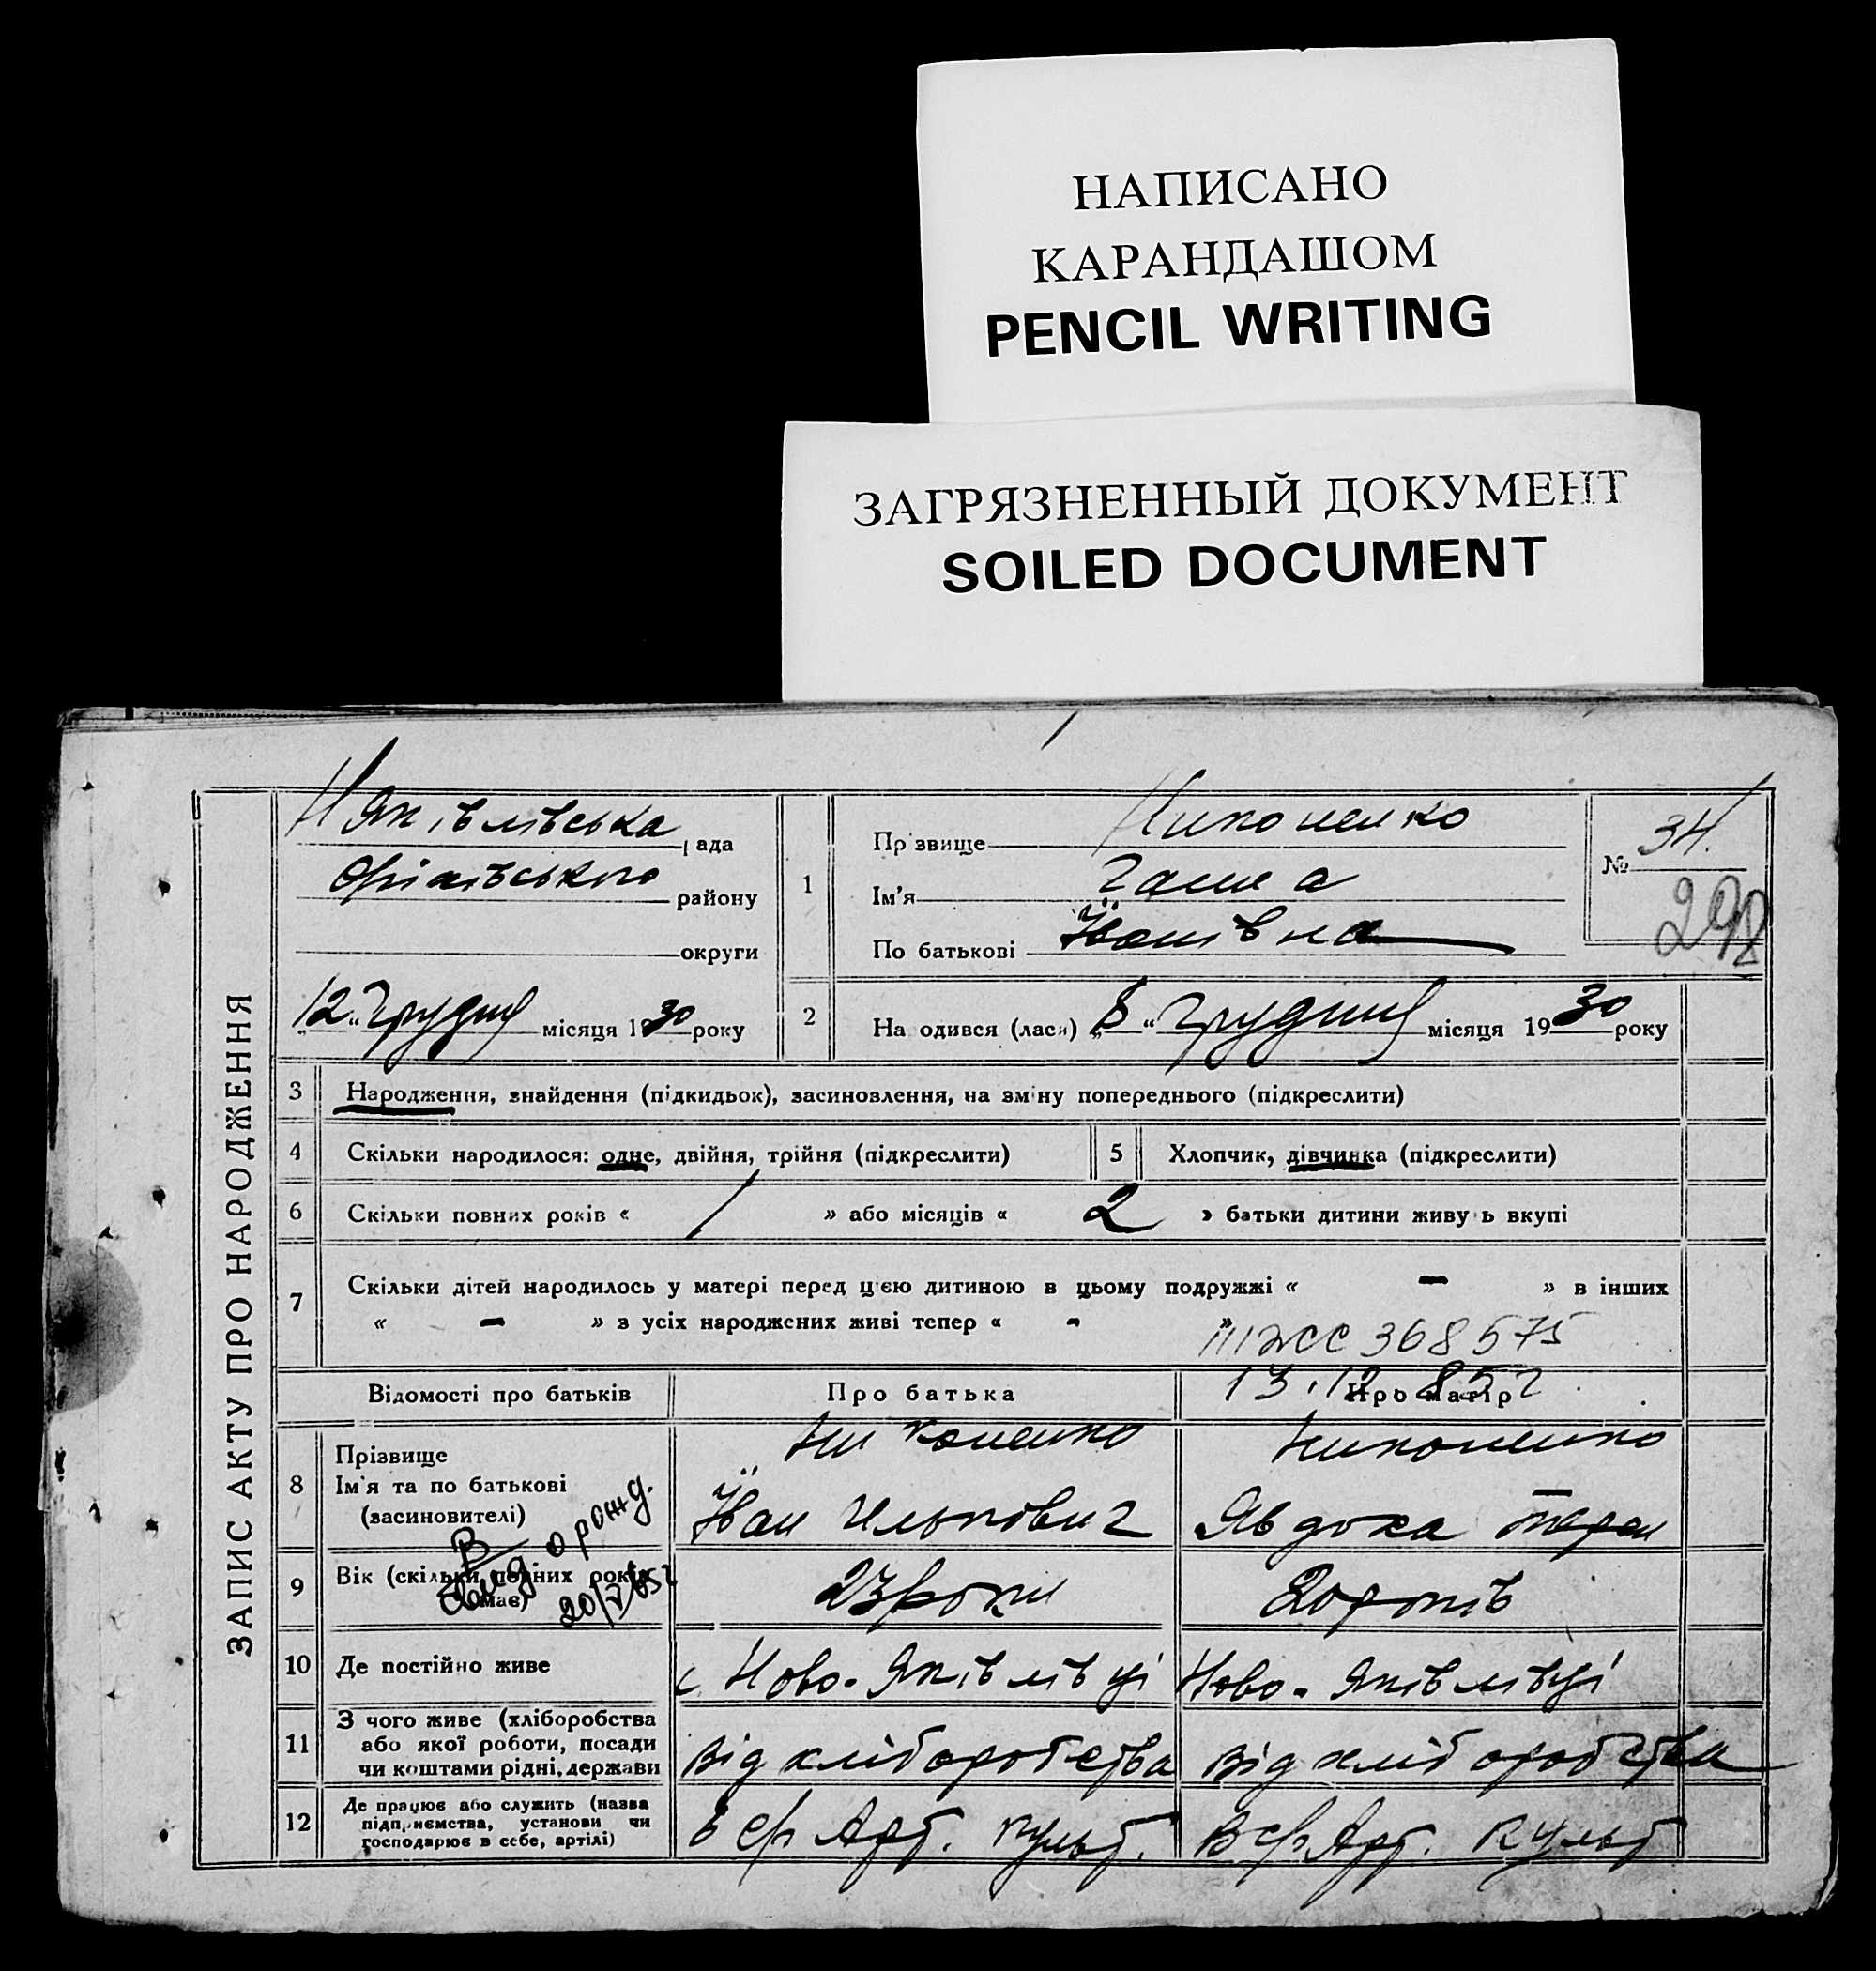 НАПИСАНО
КАРАНДАШОМ
PENCIL WRITING
ЗАГРЯЗНЕННЫЙ ДОКУМЕНТ
SOILED DOCUMENT
ЗАПИС АКТУ ПРО НАРОДЖЕННЯ
Н Яківлівська рада
Оріхівського району
округи
„12“ Грудня місяця 1930 року
1
Прізвище Никоненко
Ім'я Ганна
По батькові Йванівна
№ 34
298
2
Народився (лася) „8“ Грудня місяця 1930 року
3 Народження, знайдення (підкидьок), засиновлення, на зміну попереднього (підкреслити)
4 Скільки народилося: одне, двійня, трійня (підкреслити)
5 Хлопчик, дівчинка (підкреслити)
6 Скільки повних років « / » або місяців « 2 » батьки дитини живуть вкупі
7 Скільки дітей народилось у матері перед цією дитиною в цьому подружжі « - » в інших
« - » з усіх народжених живі тепер « - »
368575
13.12.85 г.
Відомості про батьків Про батька Про матір
8 Прізвище
Ім'я та по батькові
(засиновителі)
Никоненко
Йван
Никоненко
Явдоха
В
о рожд.
9 Вік (скільки повних років
має)
23 роки
20 років
10 Де постійно живе
с. Ново-Яківлівці
Ново-Яківлівці
11 З чого живе (хліборобства
або якої роботи, посади
чи коштами рідні, держави
від хліборобства
від хліборобства
12 Де працює або служить (назва
підприємства, установи чи
господарює в себе, артілі)
в с/г Арт. культ.
в с/г Арт. культ